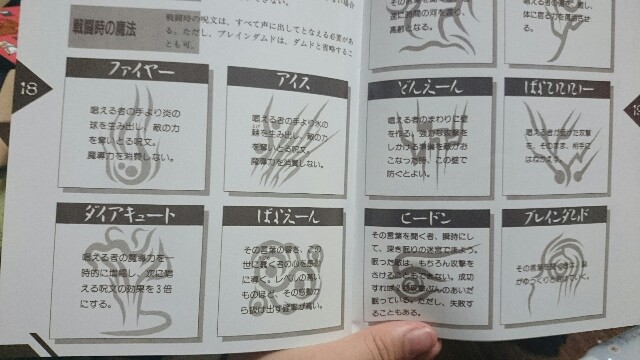 戦闘時の魔法
戦闘時の呪文は、すべて声に出してとなえる必要があ
る。ただし、ブレインダムドは、ダムドと省略するこ
とも可。
18
ファイヤー
唱える者の手より炎の
球を生み出し、敵の力
を奪いとる呪文。
魔導力を消費しない。
アイス
唱える者の手より氷の
球を生み出し、敵の力
を奪いとる呪文。
魔導力を消費しない。
ダイアキュート
唱える者の魔導力を一
時的に増幅し、次に唱
える呪文の効果を3倍
にする。
ばよえーん
その言葉の響き、この
世に異く者の心を感動
に導く。レベルの高い
ものほど、その感動か
ら抜け出す確率が高い。
高齢となる。
せる。
どんえーん
唱える者のまわりに壁
を作る。強力な攻撃を
しかける準備を敵がお
こなった時、この壁で
防ぐとよい。
唱える者が受けた攻撃
を、そのまま、相手に
はねかえす。
ヒードン
その言葉を聞く者、瞬時にし
て、深き眠りの迷宮でまよう。
眠った敵は、もちろん攻撃を
さけることもできない。成功
眠っている。ただし、失敗す
ることもある。
ブレインダムド